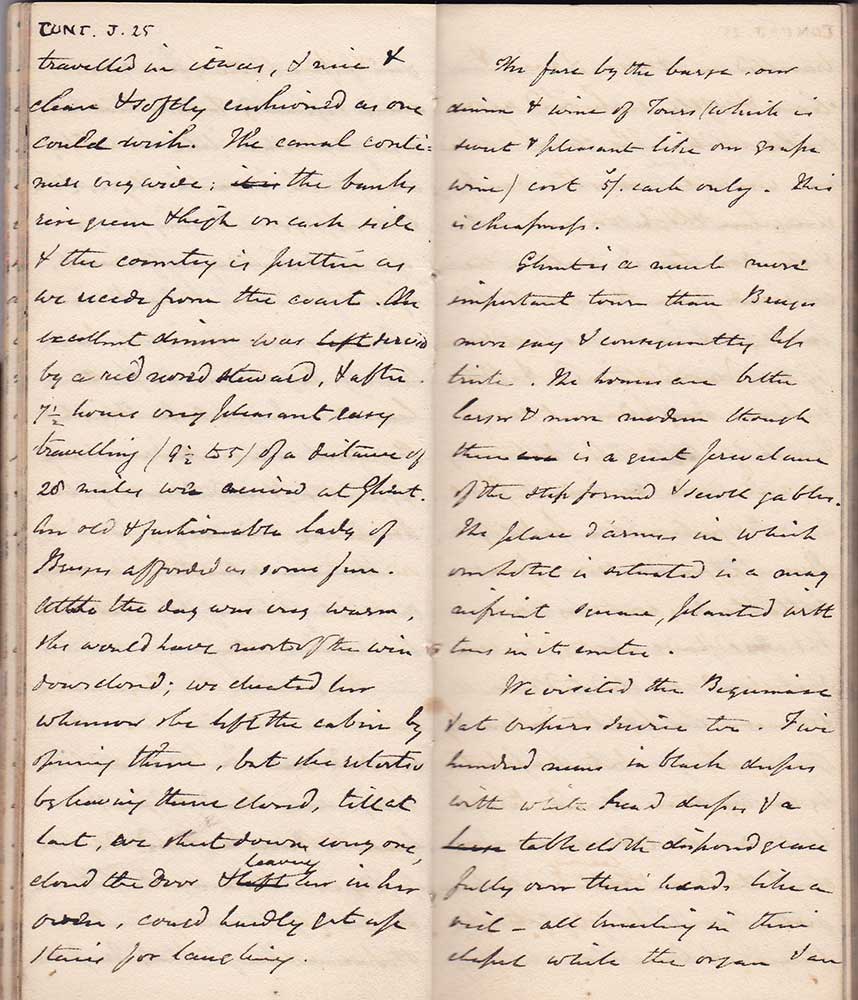 CONT. J. 25
travelled in it was, & nice &
clean & softly cushioned as one
could wish. The canal conti=
nues very wide; it is the banks
rise green & high on each side
& the country is prettier as
we recede from the coast. An
excellent dinner was left served
by a red nosed steward, & after
7½ hours very pleasant easy
travelling (9½ to 5) of a distance of
28 miles we arrived at Ghent.
An old & fashionable lady of
Bruges afforded us some fun.
Altho the day was very warm,
she would have most of the win
dows closed; we cheated her
whenever she left the cabin by
opening them, but she retorted
by having them closed, till at
last, we shut down every one,
closed the door & left leaving her in her
oven, could hardly get up
stairs for laughing.
The fare by the barge, our
dinner & wine of Tours (which is
sweet & pleasant like our grape
wine) cost 5/. each only. This
is cheapness.
Ghent is a much more
important town than Bruges
more gay & consequently less
triste. The houses are better
larger & more modern though
there are is a great prevalence
of the step formed & scroll gables.
The place d'armes in which
our hotel is situated is a mag
nificent square, planted with
trees in its centre.
We visited the Beguinage
& at vespers service too. Five
hundred nuns in black dresses
with white head dresses & a
table cloth disposed grace
fully over their heads like a
veil – all kneeling in their
chapel while the organ & an